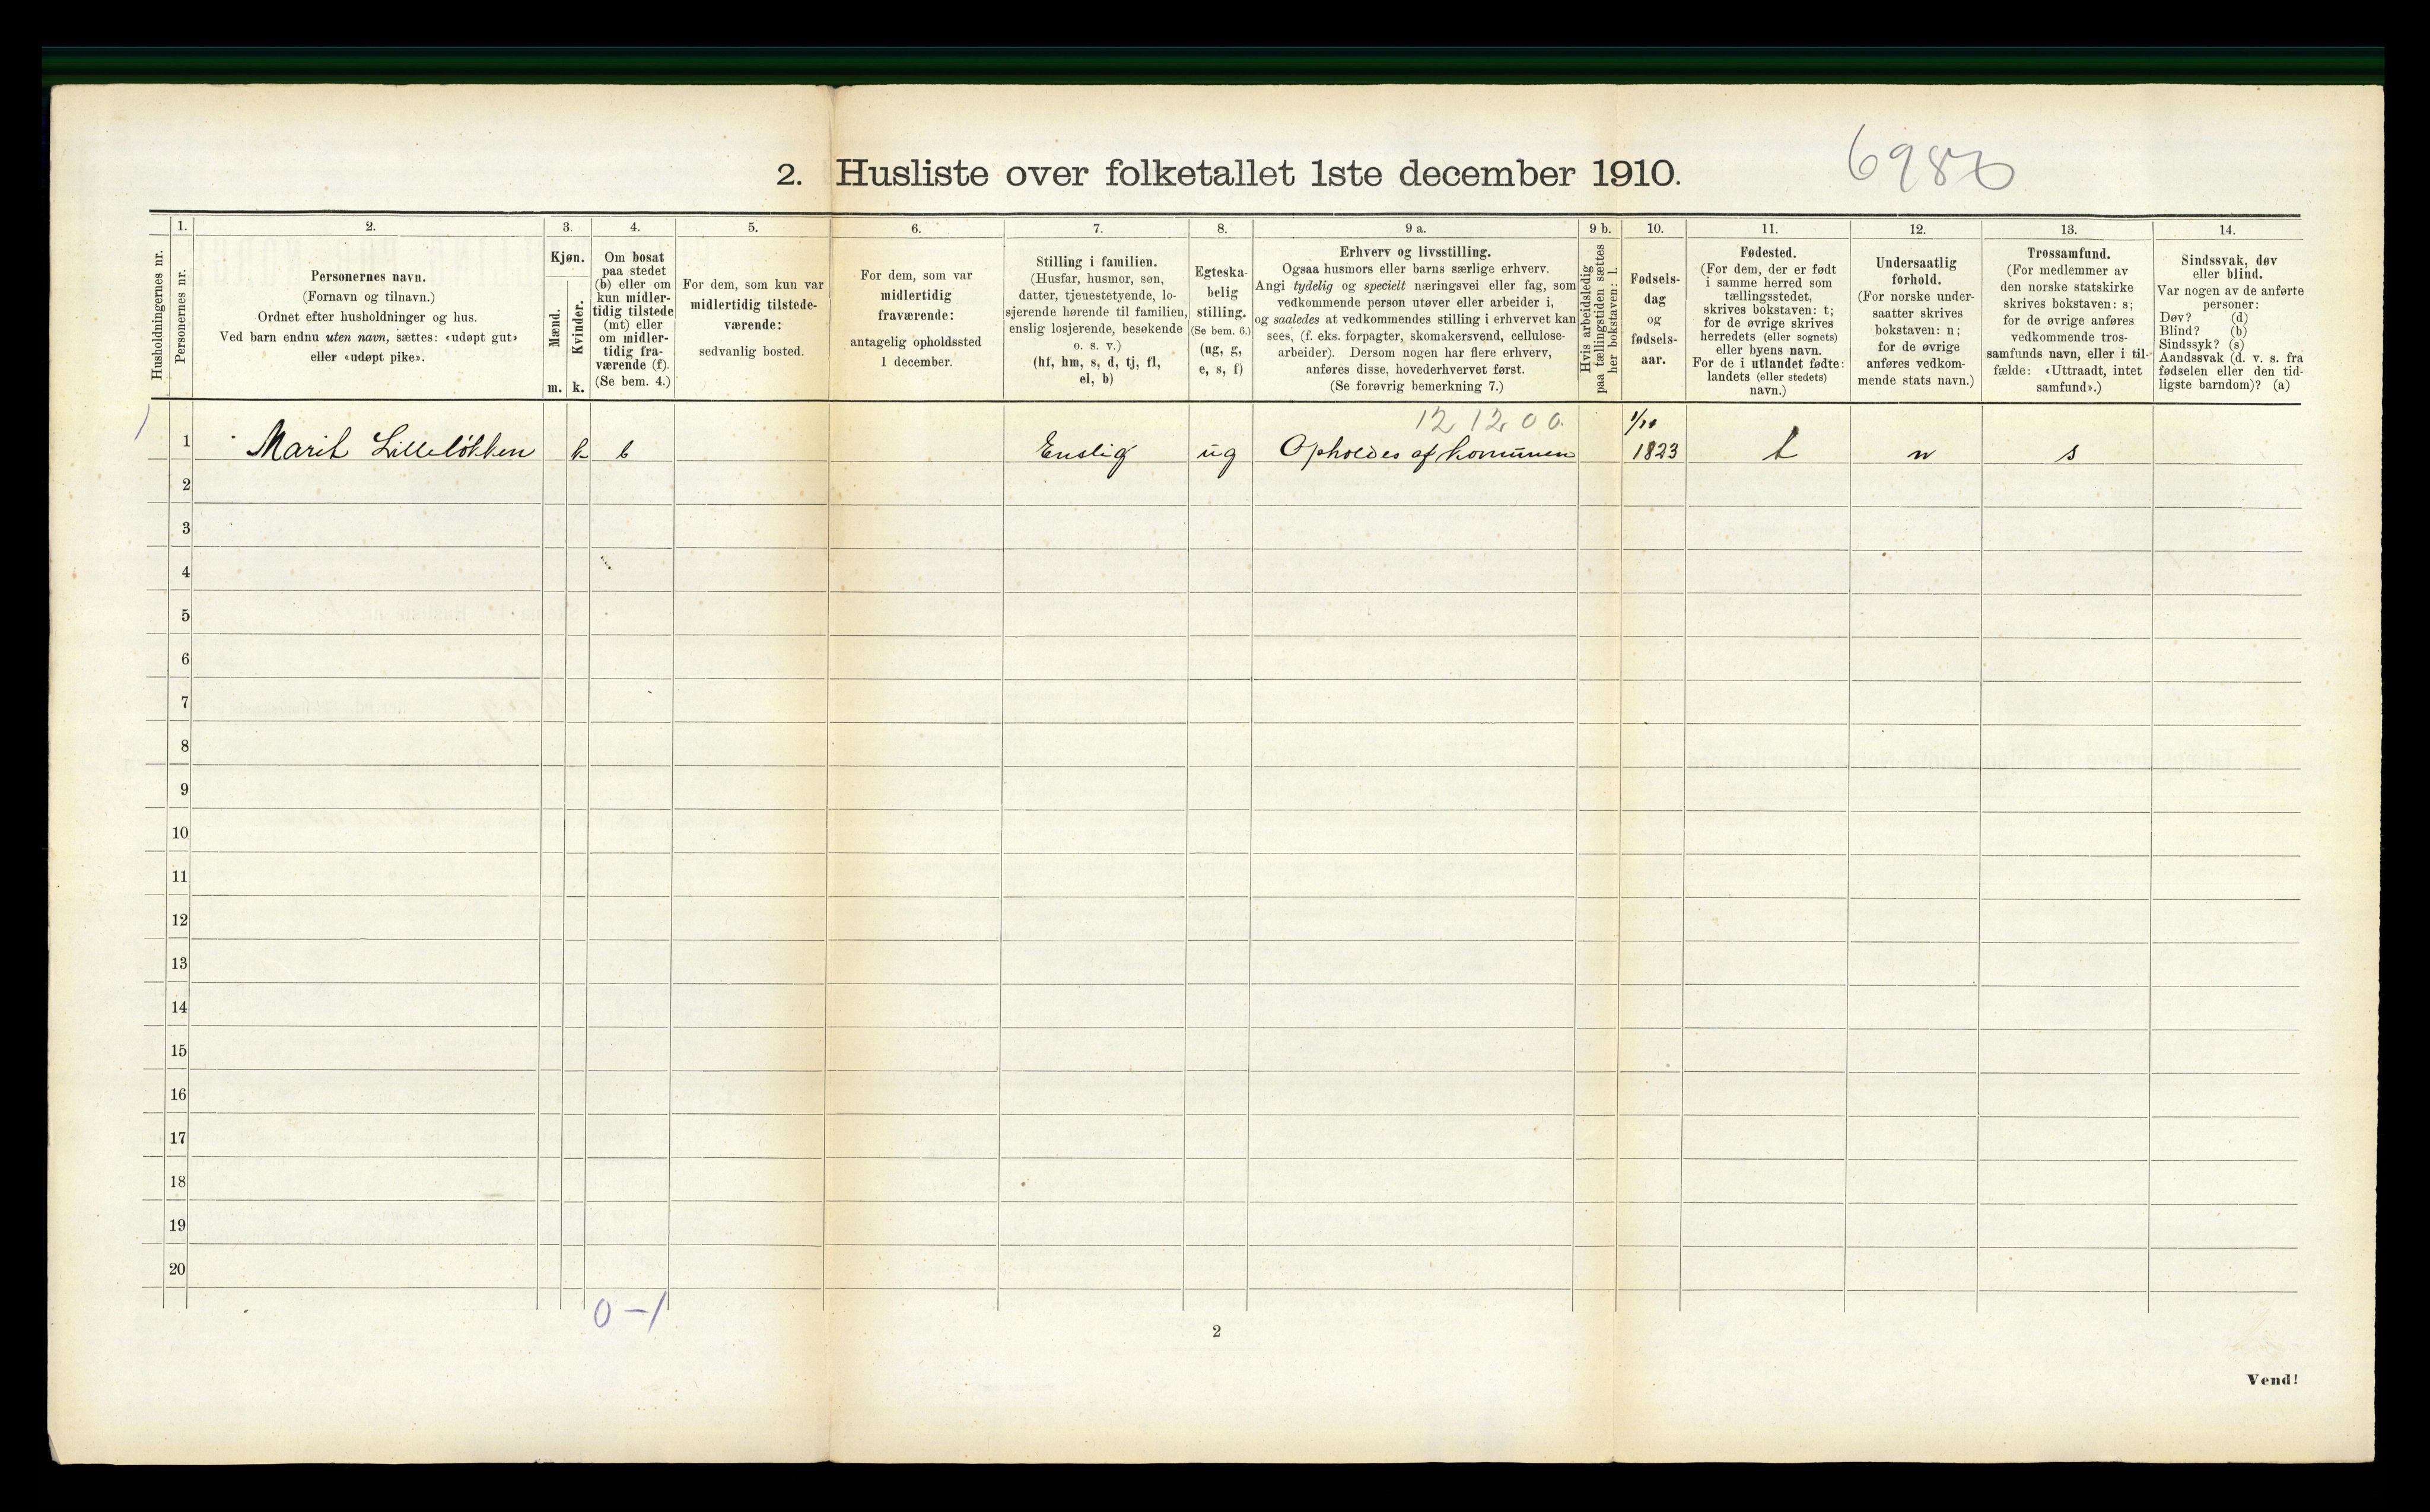 2. Husliste over folketallet 1ste december 1910.
Husholdningernes nr.
1.
Personernes nr.
2.
Personernes navn.
(Fornavn og tilnavn.)
Ordnet efter husholdninger og hus.
Ved barn endnu uten navn, sættes: «udøpt gut»
eller «udøpt pike».
3.
Kjøn.
Mænd.
m.
Kvinder.
k.
4.
Om bosat
paa stedet
(b) eller om
kun midler-
tidig tilstede
(mt) eller
om midler-
tidig fra-
værende (f).
(Se bem. 4.)
5.
For dem, som kun var
midlertidig tilstede-
værende:
sedvanlig bosted.
6.
For dem, som var
midlertidig
fraværende:
antagelig opholdssted
1 december.
7.
Stilling i familien.
(Husfar, husmor, søn,
datter, tjenestetyende, lo-
sjerende hørende til familien,
enslig losjerende, besøkende
o. s. v.)
(hf, hm, s, d, tj, fl,
el, b)
8.
Egteska-
belig
stilling.
(Se bem. 6.)
(ug, g,
e, s, f)
9 a.
Erhverv og livsstilling.
Ogsaa husmors eller barns særlige erhverv.
Angi tydelig og specielt næringsvei eller fag, som
vedkommende person utøver eller arbeider i,
og saaledes at vedkommendes stilling i erhvervet kan
sees, (f. eks. forpagter, skomakersvend, cellulose-
arbeider). Dersom nogen har flere erhverv,
anføres disse, hovederhvervet først.
(Se forøvrig bemerkning 7.)
9 b.
Hvis arbeidsledig
paa tællingstiden sættes
her bokstaven: l.
10.
Fødsels-
dag
og
fødsels-
aar.
11.
Fødested.
(For dem, der er født
i samme herred som
tællingsstedet,
skrives bokstaven: t;
for de øvrige skrives
herredets (eller sognets)
eller byens navn.
For de i utlandet fødte:
landets (eller stedets)
navn.)
12.
Undersaatlig
forhold.
(For norske under-
saatter skrives
bokstaven: n;
for de øvrige
anføres vedkom-
mende stats navn.)
13.
Trossamfund.
(For medlemmer av
den norske statskirke
skrives bokstaven: s;
for de øvrige anføres
vedkommende tros-
samfunds navn, eller i til-
fælde: «Uttraadt, intet
samfund».)
14.
Sindssvak, døv
eller blind.
Var nogen av de anførte
personer:
Døv? (d)
Blind? (b)
Sindssyk? (s)
Aandssvak (d. v. s. fra
fødselen eller den tid-
ligste barndom)? (a)
12 12 0 0.
1 1 Marit Lilleløkken k b Enslig ug Opholdes af komunen 1823 t n s
2
3
4
5
6
7
8
9
10
11
12
13
14
15
16
17
18
19
20
0 - 1
2
Vend!